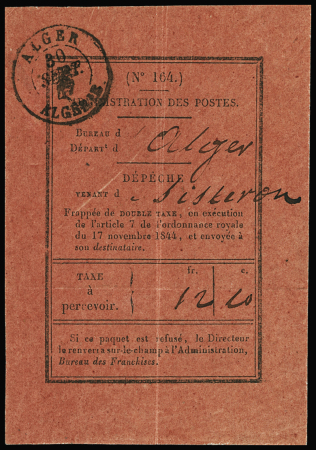 ALGER
30
SEPT.
ALGÉRIE
(N° 164.)
ADMINISTRATION DES POSTES.
BUREAU d
DÉPART<sup>t</sup> d' Alger
DÉPÊCHE
VENANT d e Sisteron
Frappée de DOUBLE TAXE, en exécution
de l'article 7 de l'ordonnance royale
du 17 novembre 1844, et envoyée à
son destinataire.
TAXE
à
percevoir.
fr. c.
12 10
Si ce paquet est refusé, le Directeur
le renverra sur-le-champ à l'Administration,
Bureau des Franchises.